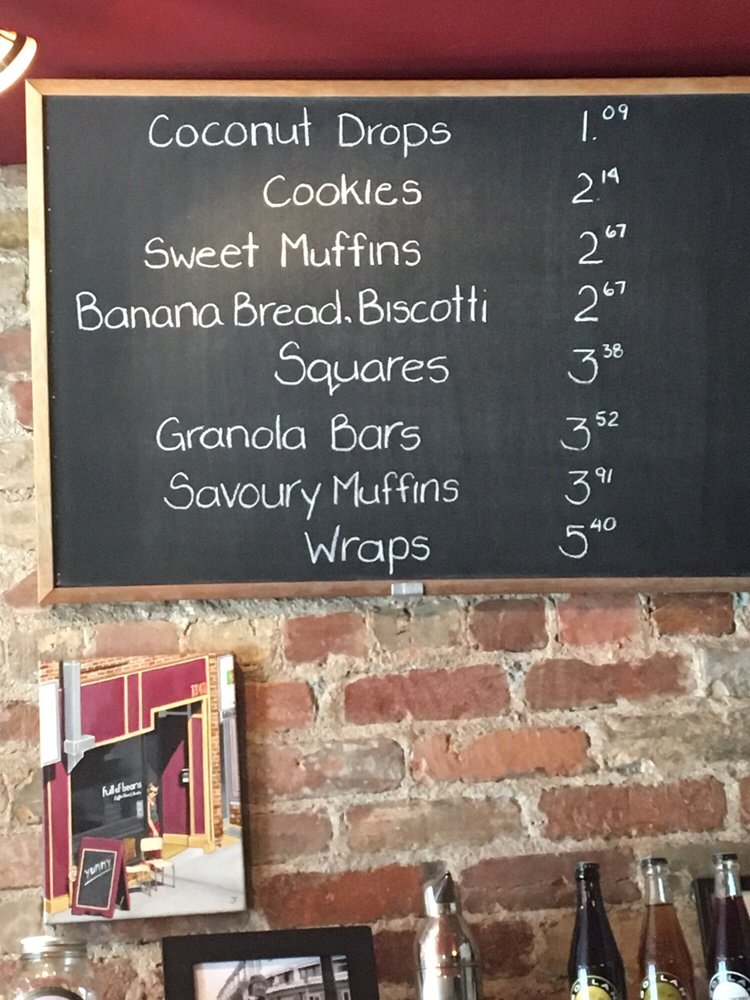 Coconut Drops 1.09
Cookies 2.14
Sweet Muffins 2.67
Banana Bread. Biscotti 2.67
Squares 3.38
Granola Bars 3.52
Savoury Muffins 3.91
Wraps 5.40
full of beans
YUMMY